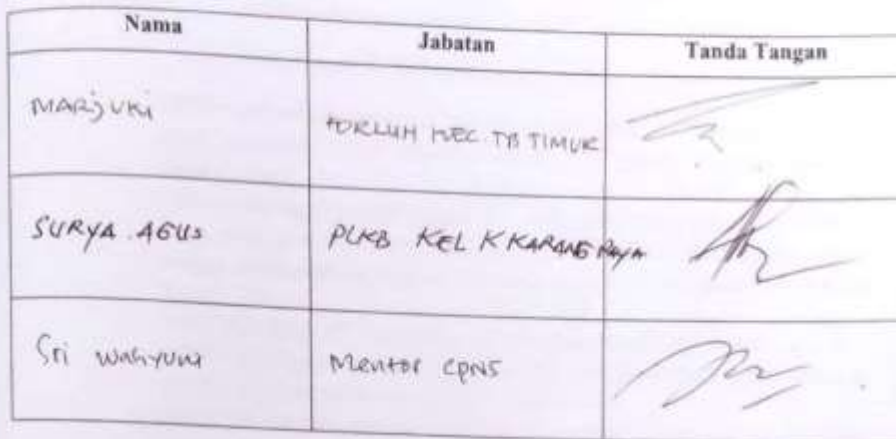 Nama Jabatan Tanda Tangan
MARJUKI KORLUH KEC. TB TIMUR
SURYA AGUS PLKB KEL K KARANG RAYA
Sri Wahyuni Mentor CPNS